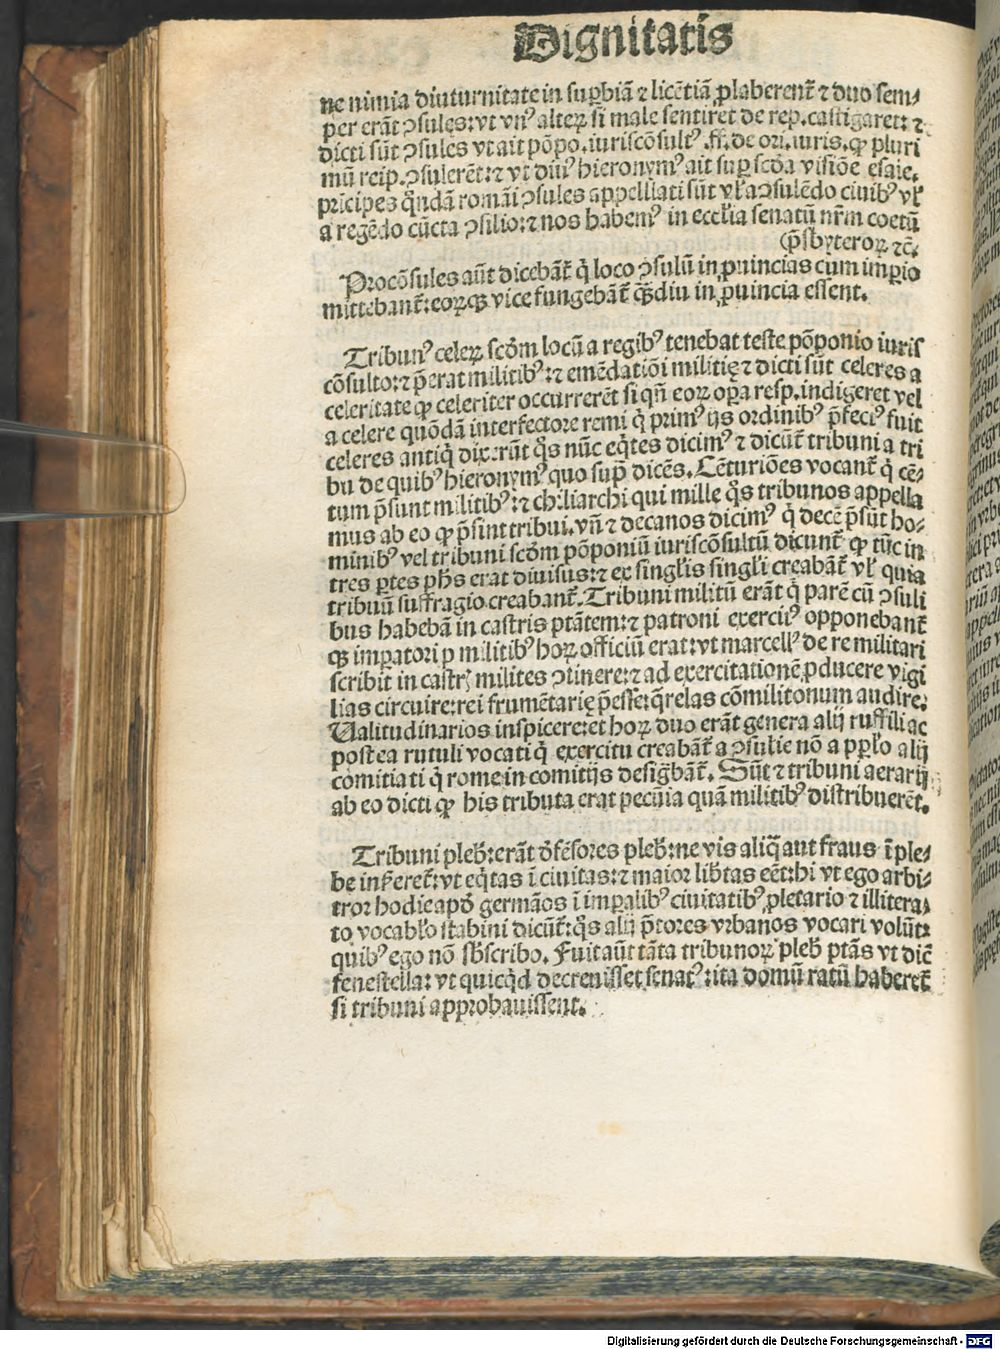 Dignitatis
ne nimia diuturnitate in suꝑbiā ⁊ licētiā ꝓlaberent̄ ⁊ duo sem⸗
per erāt ꝯsules: vt vnꝰ alteꝝ si male sentiret de rep. castigaret: ⁊
dicti sūt ꝯsules vt ait pōpo. iuriscōsultꝰ. ff. de ori. iuris. ꝙ pluri
mū reip. ꝯsulerēt: ⁊ vt diuꝰ hieronymꝰ ait suꝑ scd̄a visiōe esaie.
prīcipes qͦndā romāi ꝯsules appellati sūt vl̓ a ꝯsulēdo ciuibꝰ vl̓
a regēdo cūcta ꝯsilio: ⁊ nos habemꝰ in eccl̓ia senatū nr̄m coetū
(p̄sbyteroꝝ ⁊c̄.
Procōsules aūt dicebāt̄ q̇ loco ꝯsulū in ꝓuincias cum imꝑio
mittebant̄: eoꝝqꝫ vice fungebāt̄ qͣꝫdiu in ꝓuincia essent.
Tribunꝰ celeꝝ scd̄m locū a regibꝰ tenebat teste pōponio iuris
cōsulto: ⁊ p̄erat militibꝰ: ⁊ emēdatiōi militię ⁊ dicti sūt celeres a
celeritate ꝙ celeriter occurrerēt si qn̄ eoꝝ oꝑa resp. indigeret vel
a celere quōdā interfectore remi q̇ primꝰ ijs ordinibꝰ p̄fectꝰ fuit
celeres antiq̇ dixerūt qͦs nūc eq̇tes dicimꝰ ⁊ dicūt̄ tribuni a tri
bu de quibꝰ hieronymꝰ quo supͣ dicēs. Cēturiōes vocant̄ q̇ cē⸗
tum p̄sunt militibꝰ: ⁊ chiliarchi qui mille qͦs tribunos appella
mus ab eo ꝙ p̄sint tribui. vn̄ ⁊ decanos dicimꝰ q̇ decē p̄sūt ho⸗
minibꝰ vel tribuni scd̄m pōponiū iuriscōsultū dicunt̄ ꝙ tūc in
tres ꝑtes pl̓s erat diuisus: ⁊ ex singl̓is singl̓i creabāt̄ vl̓ quia
tribuū suffragio creabant̄. Tribuni militū erāt q̇ parē cū ꝯsuli
bus habebā in castris ptātem: ⁊ patroni exercitꝰ opponebant̄
qꝫ imꝑatori ꝑ militibꝰ hoꝝ officiū erat: vt marcellꝰ de re militari
scribit in castrꝭ milites ꝯtinere: ⁊ ad exercitationē ꝓducere vigi
lias circuire: rei frumētarię p̄esse: q̄relas cōmilitonum audire:
Ualitudinarios inspicere: et hoꝝ duo erāt genera alij ruffili ac
postea rutuli vocati q̇ exercitu creabāt̄ a ꝯsulie nō a ppl̓o alij
comitiati q̇ rome in comitijs desigͣbāt̄. Sūt ⁊ tribuni aerarij
ab eo dicti ꝙ his tributa erat pecūia quā militibꝰ distribuerēt.
Tribuni pleb̓: erāt d̄fēsores pleb̓: ne vis aliqͣ aut fraus ī ple⸗
be inferet̄: vt eqͥtas ī ciuitas: ⁊ maior lib̓tas eēt: hi vt ego arbi⸗
tror hodie apd̓ germāos ī imꝑalibꝰ ciuitatibꝰ ꝓletario ⁊ illitera⸗
to vocabl̓o stabini dicūt̄: qͦs alij p̄tores vrbanos vocari volūt:
quibꝰ ego nō sb̓scribo. Fuit aūt tāta tribunoꝝ pleb̓ ptās vt dic̄
fenestella: vt quicqͥd decreuisset senatꝰ: ita domū ratū haberet̄
si tribuni approbauissent.
Digitalisierung gefördert durch die Deutsche Forschungsgemeinschaft - DFG